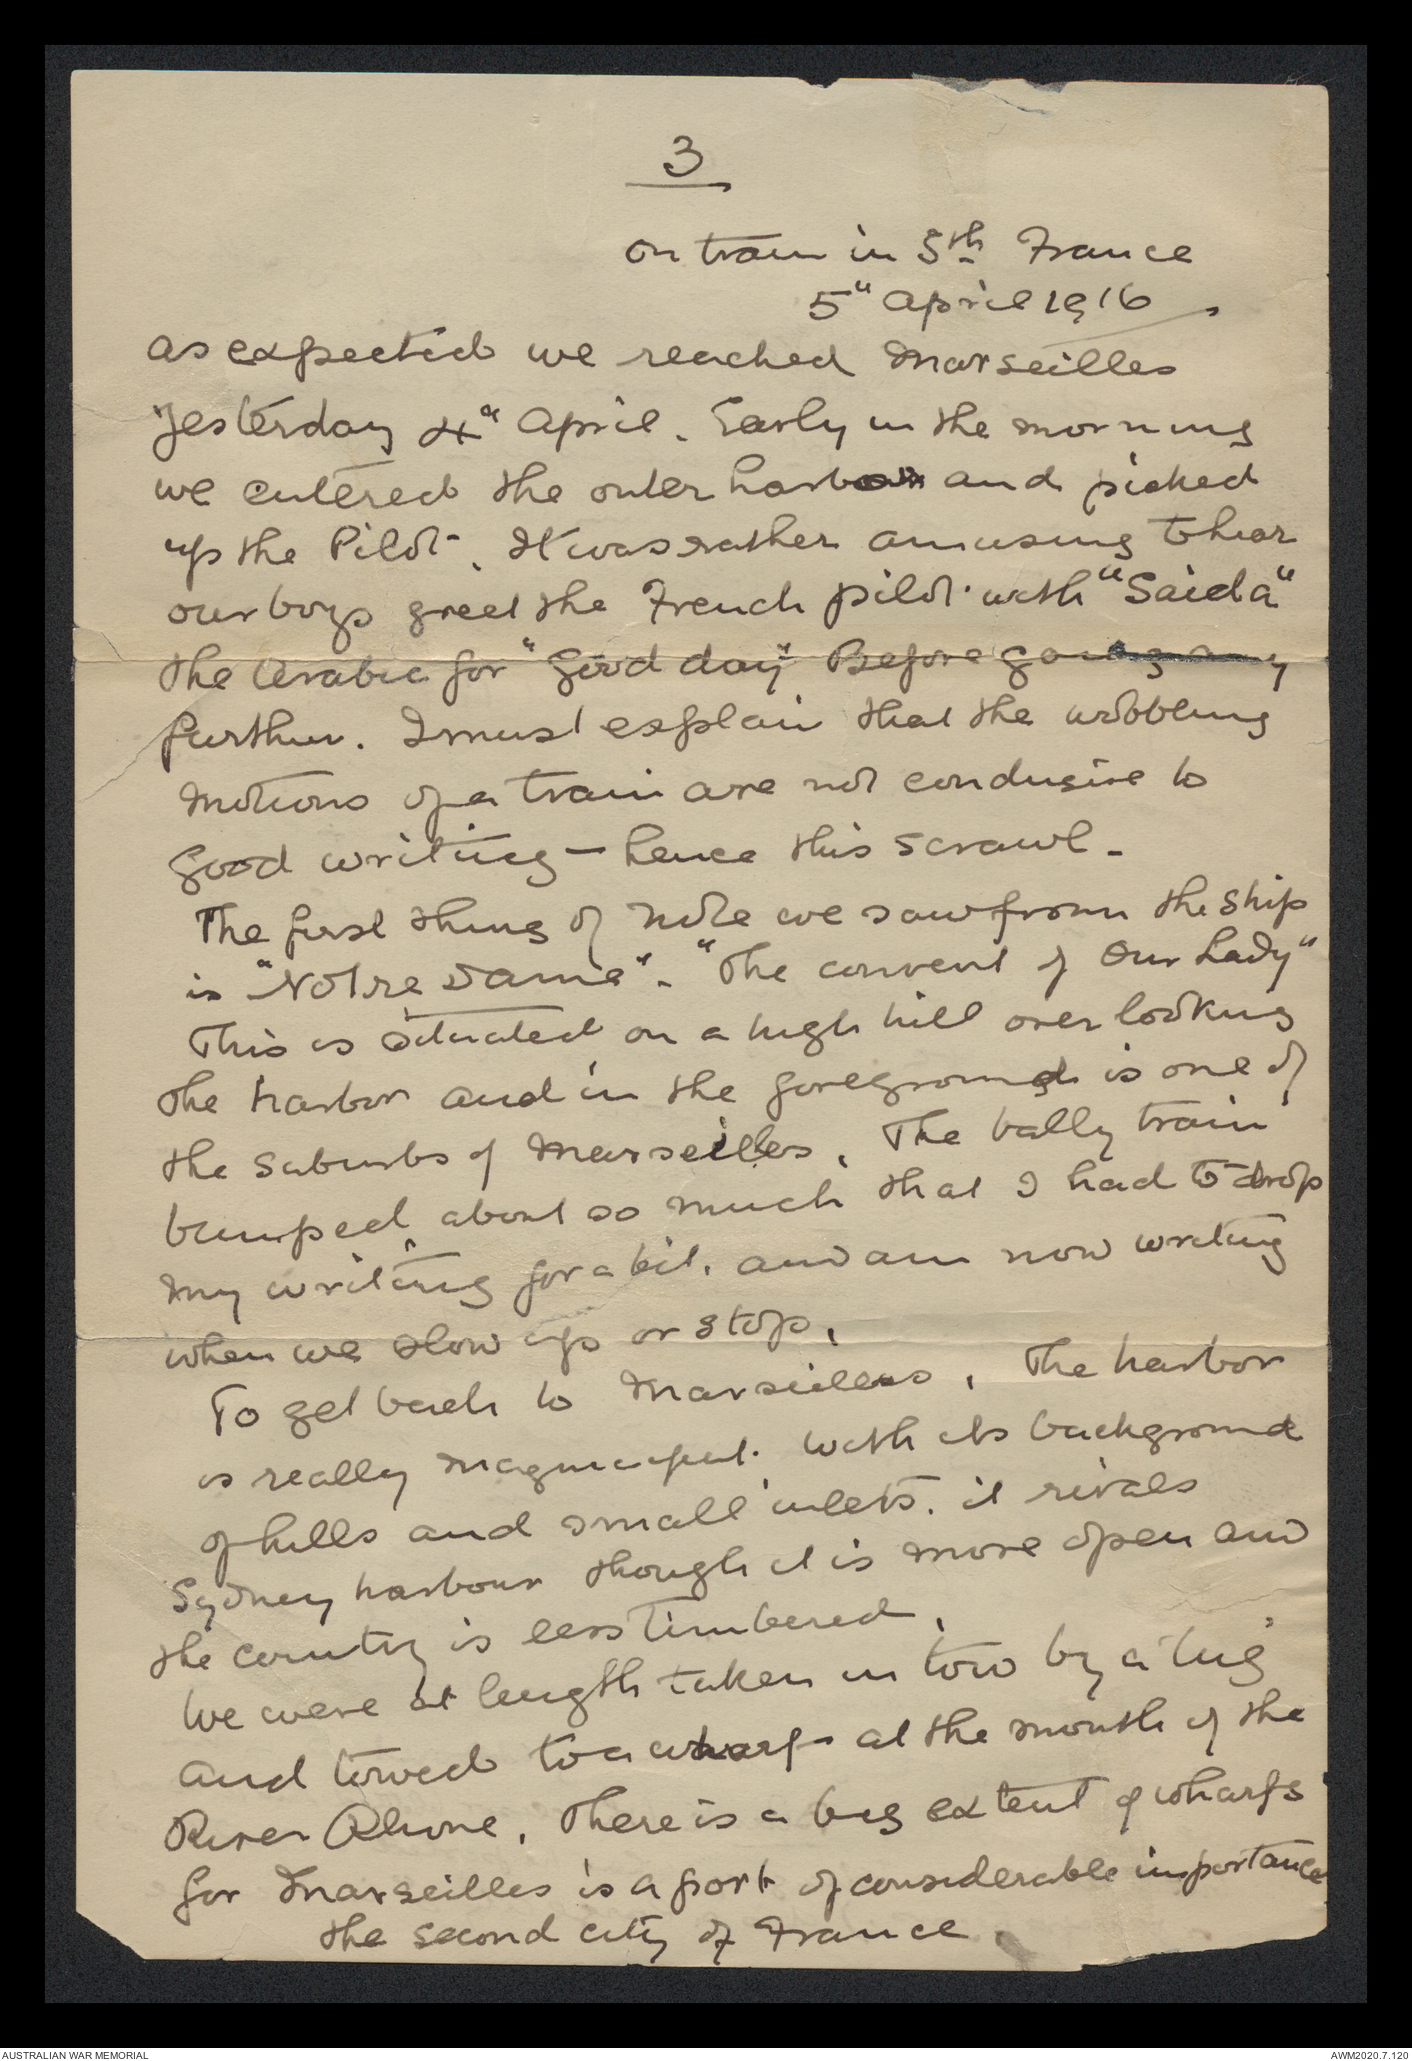 3
On train in Sth France
5" April 1916
As expected we reached Marseilles
Yesterday 4" April. Early in the morning
we entered the outer harbour and picked
up the Pilot. It was rather amusing to hear
our boys greet the French pilot with "Saida"
the Arabic for "Good day" Before going any
further. I must explain that the wobbling
motions of a train are not condusive to
good writing — hence this scrawl.
The first thing of note we saw from the ship
is "Notre Dame". "The convent of Our Lady"
This is situated on a high hill over looking
the harbor and in the foreground is one of
the suburbs of Marseilles. The bally train
bumped about so much that I had to drop
my writing for a bit. and am now writing
when we slow up or stop.
To get back to Marseilles. The harbor
is really magnificent. With its background
of hills and small inlets. it rivals
Sydney harbour though it is more open and
the country is less timbered.
We were at length taken in tow by a tug
and towed to a wharf at the mouth of the
River Rhone. There is a big extent of wharfs
for Marseilles is a port of considerable importance
the second city of France.
AUSTRALIAN WAR MEMORIAL
AWM2020.7.120